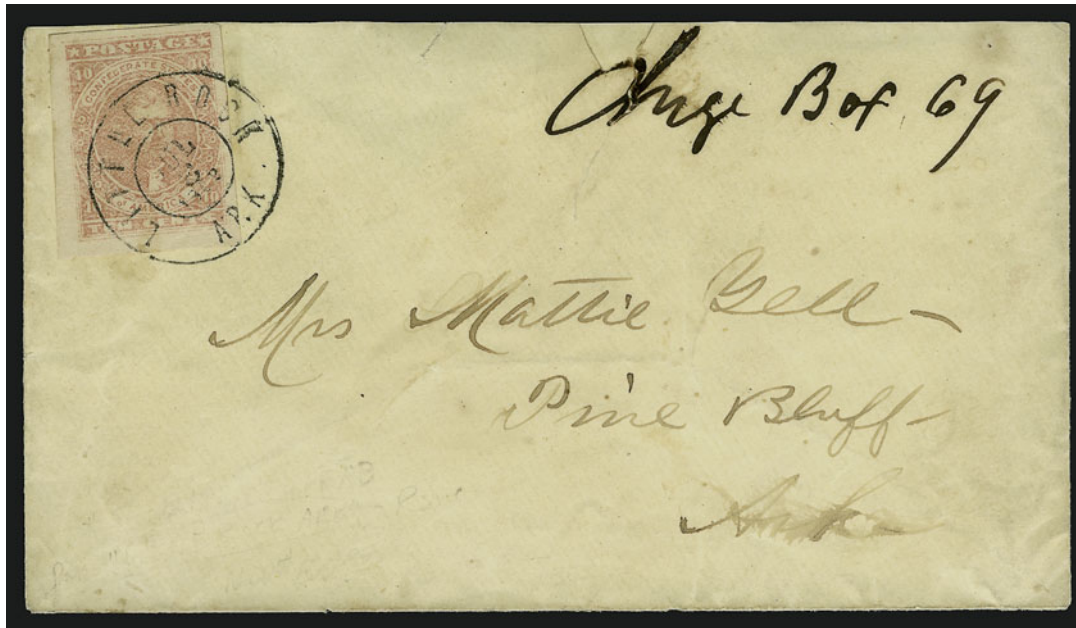 POSTAGE
10 10
CONFEDERATE STATES
LITTLE ROCK.
JUL
ARK.
Chge Box 69
Mrs Mattie Yell -
Pine Bluff -
Ark -